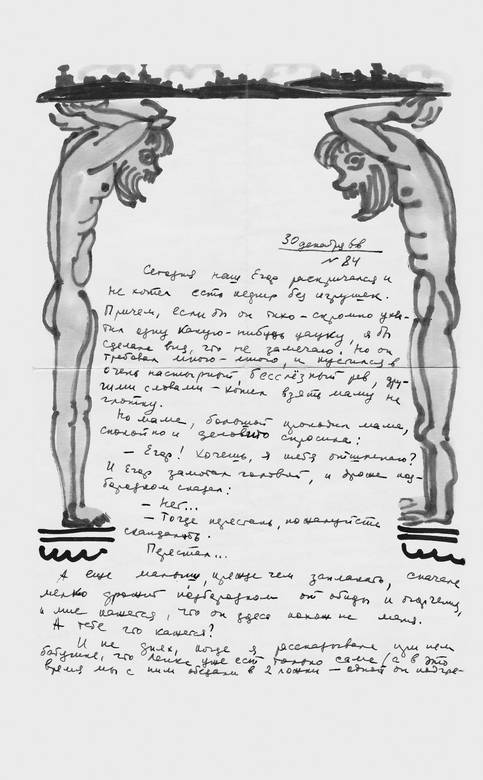 30 декабря 68
N 84
Сегодня наш Егор раскричался и
не хотел есть кефир без игрушек.
Причем, если бы он тихо-скромно ухва-
тил одну какую-нибудь цацку, я бы
сделала вид, что не замечаю. Но он
требовал много-много, и пустился в
очень настырный бесслёзный рев, дру-
гими словами – хотел взять маму на
глотку.
Но мама, большой крокодил мама,
спокойно и деловито спросила:
– Егор! Хочешь, я тебя отшлепаю?
И Егор замотал головой, и дрожа под-
бородком сказал:
– Нет...
– Тогда перестань, пожалуйста
скандалить.
Перестал...
А еще малыш, прежде чем заплакать, сначала
мелко дрожит подбородком от обиды и
и мне кажется, что он здесь похож на меня.
А тебе что кажется?
И на днях, когда я рассказывала при нем
бабушке, что уже ест только сама (а в это
время мы с ним обедали в 2 ложки – одной он